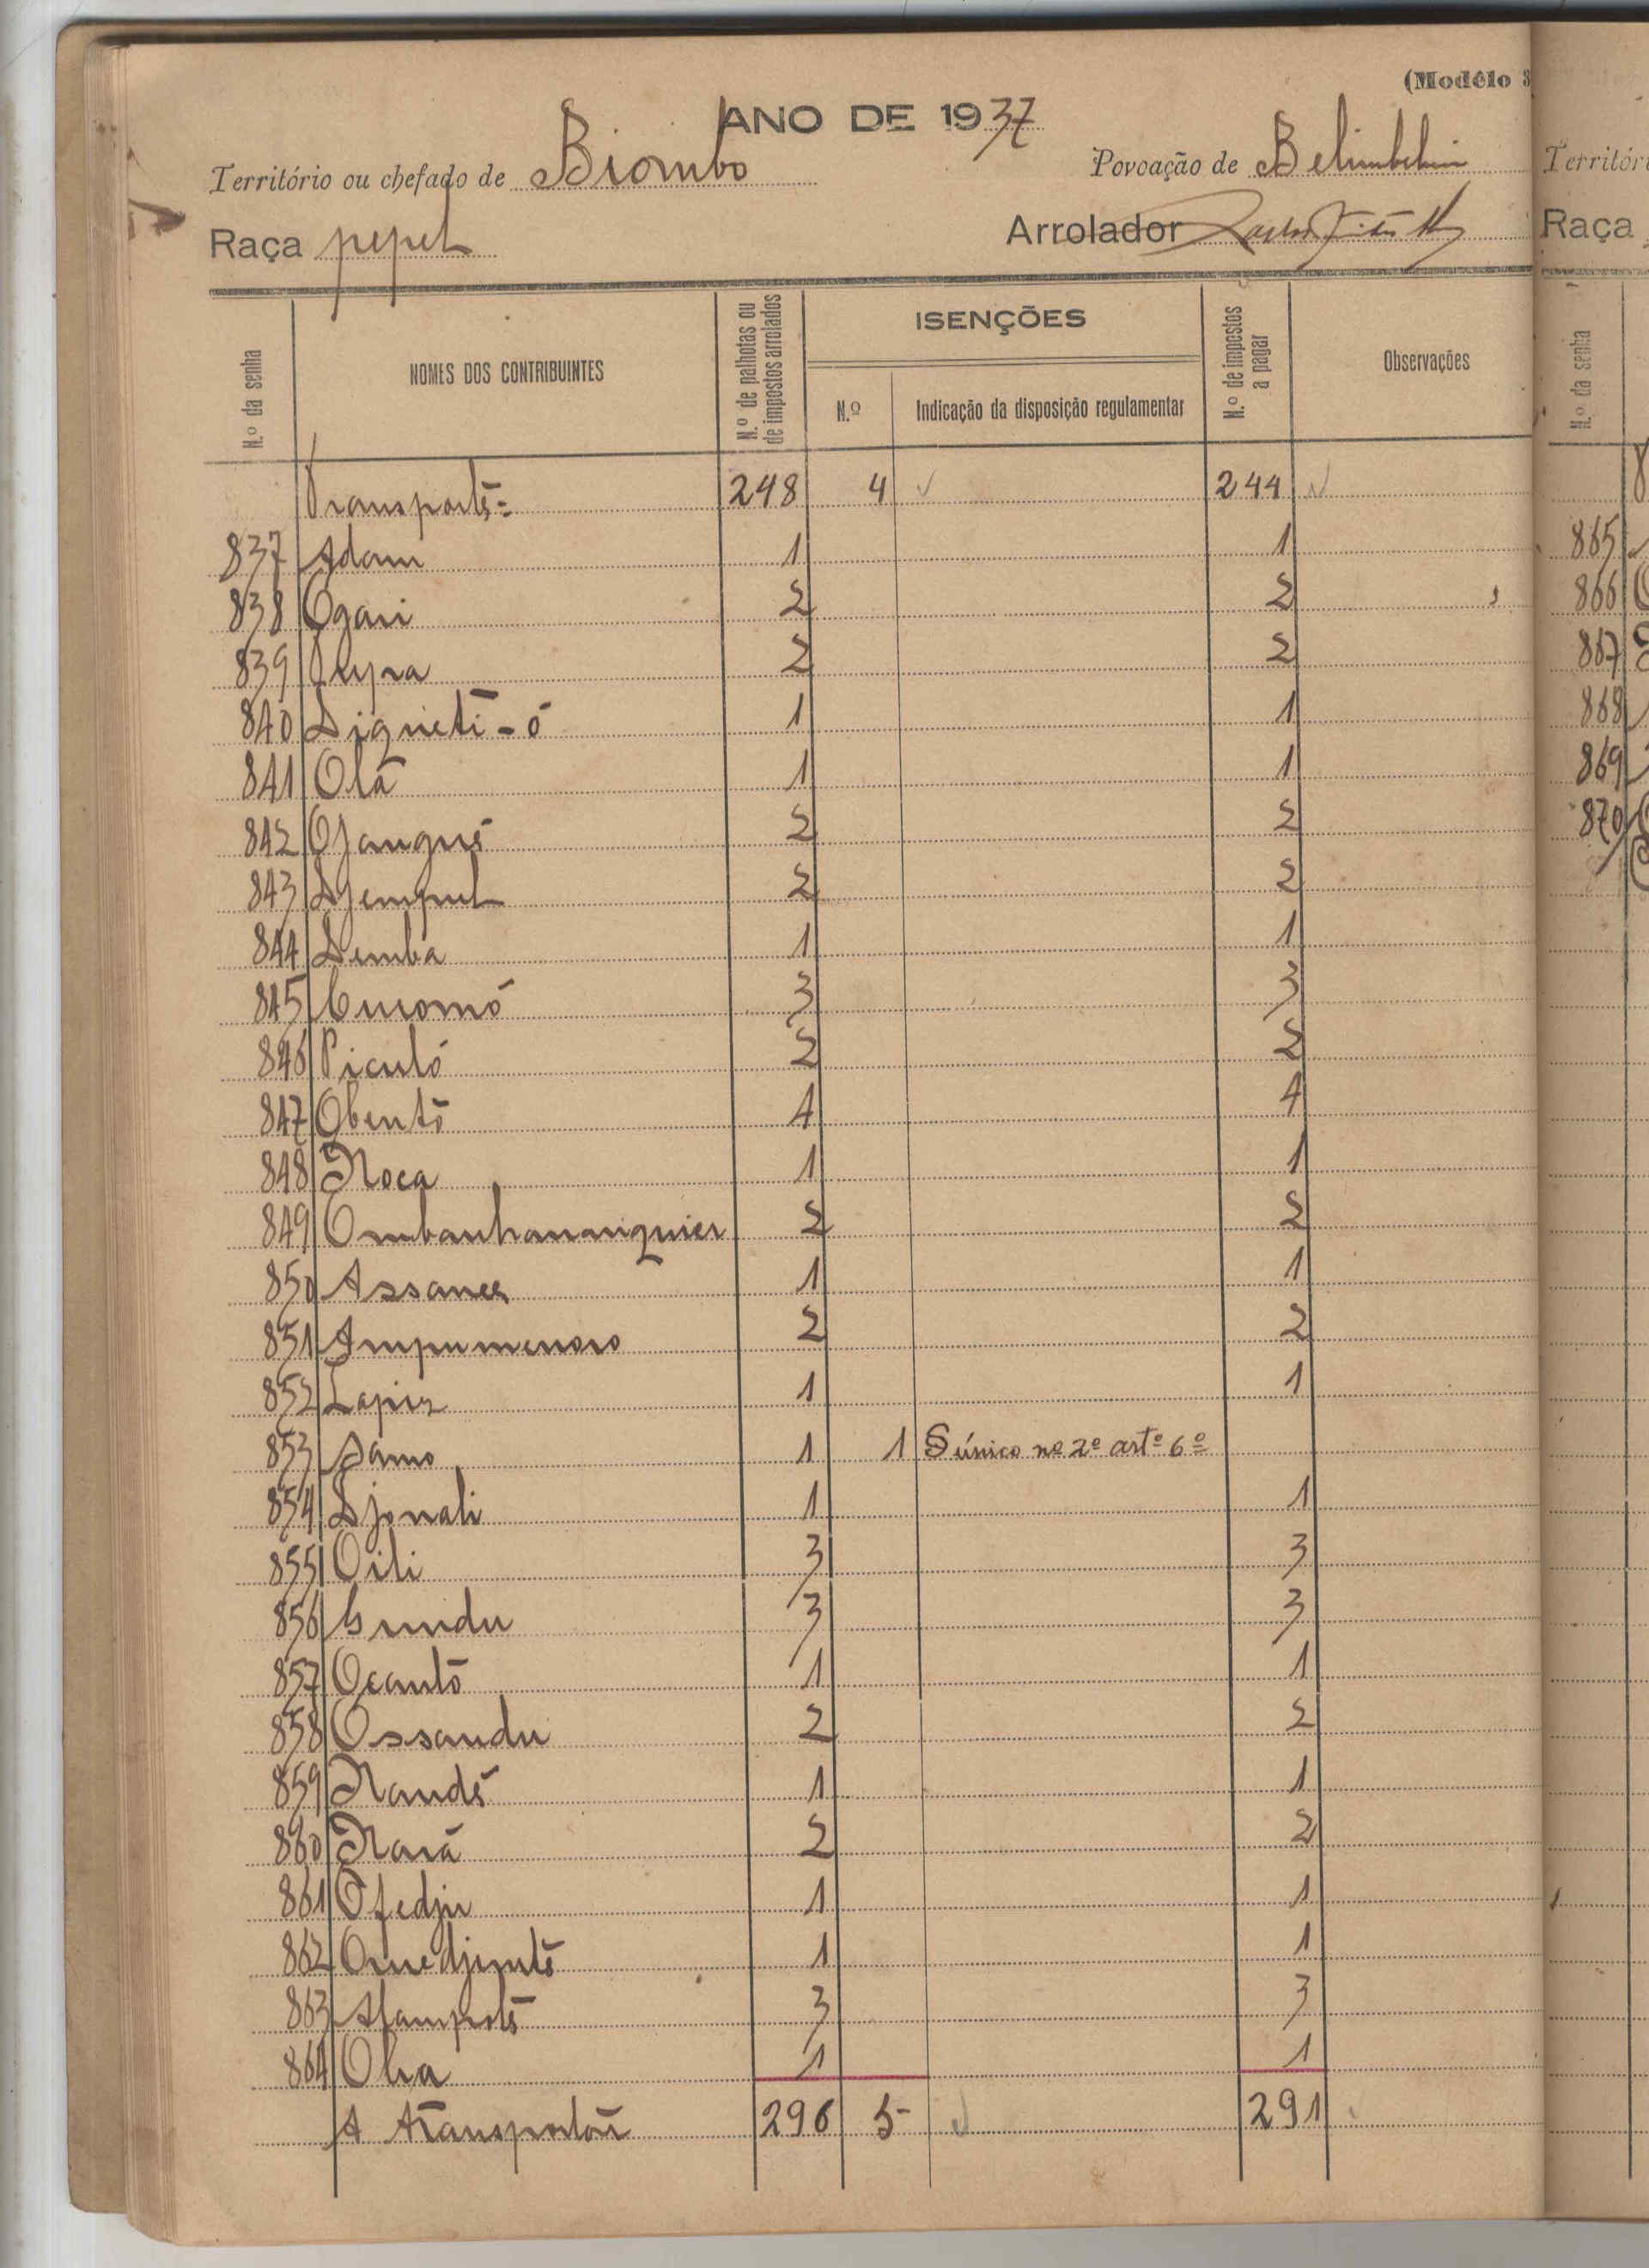 (Modêlo 3
ANO DE 1937
Território ou chefado de Biombo
Povoação de
Raça pepel
Arrolador
N.º da senha
NOMES DOS CONTRIBUINTES
N.º de palhotas ou de impostos arrolados
ISENÇÕES
N.º
Indicação da disposição regulamentar
N.º de impostos a pagar
Observações
Transporte = 248 4 244
837 Adam 1 1
838 Ogari 2 2
839 2 2
840 Diqueti - ó 1 1
841 Olá 1 1
842 Ojangué 2 2
843 2 2
844 Demba 1 1
845 3 3
846 Piculó 2 2
847 Obentó 4 4
848 Noca 1 1
849 2 2
850 1 1
851 2 2
852 1 1
853 Samo 1 1 § único nº 2º artº 6º
854 Djonali 1 1
855 Oili 3 3
856 3 3
857 Ocantó 1 1
858 Ossandu 2 2
859 Nandé 1 1
860 Nará 2 2
861 Ofedju 1 1
862 1 1
863 3 3
864 1 1
A transportar 296 5 291
Territóri
Raça
N.º da senha
865
866
867
868
869
870